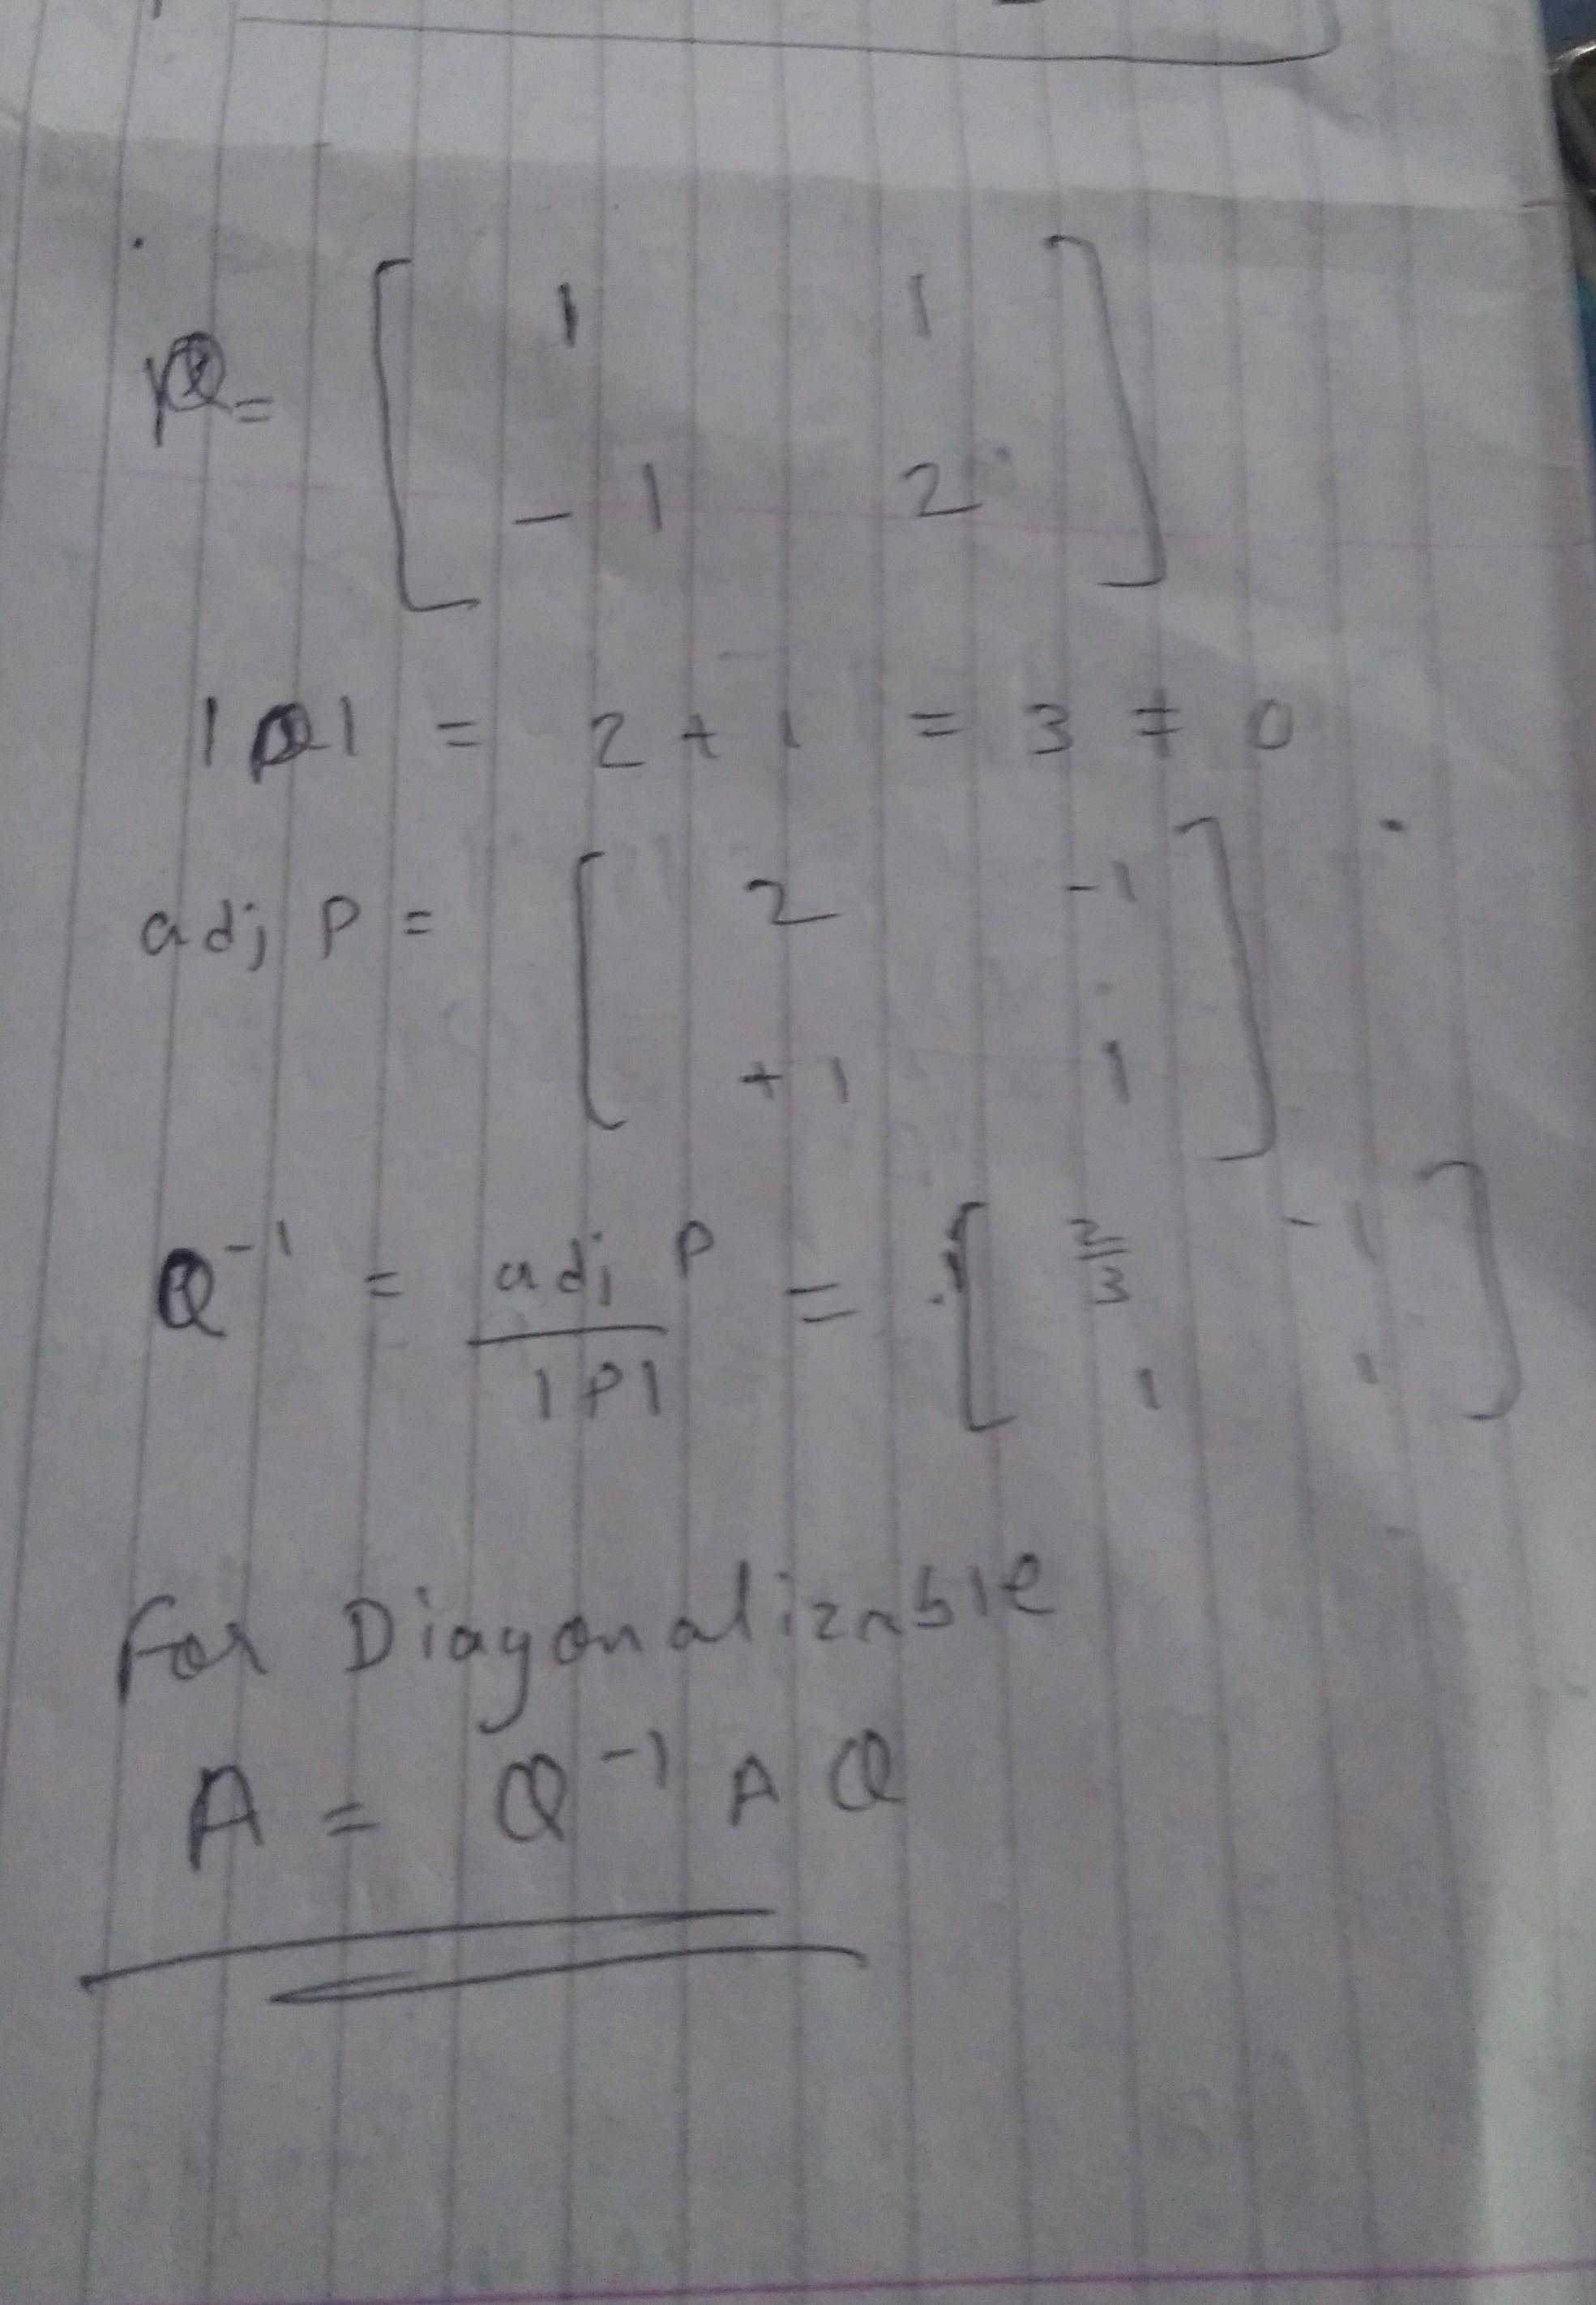 Q = [ 1 1
-1 2 ]
|Q| = 2 + 1 = 3 ≠ 0
adj P = [ 2 -1
+1 1 ]
Q⁻¹ = adj P / |P| = [ 2/3 -1
1 1 ]
For Diagonalizable
A = Q⁻¹ A Q